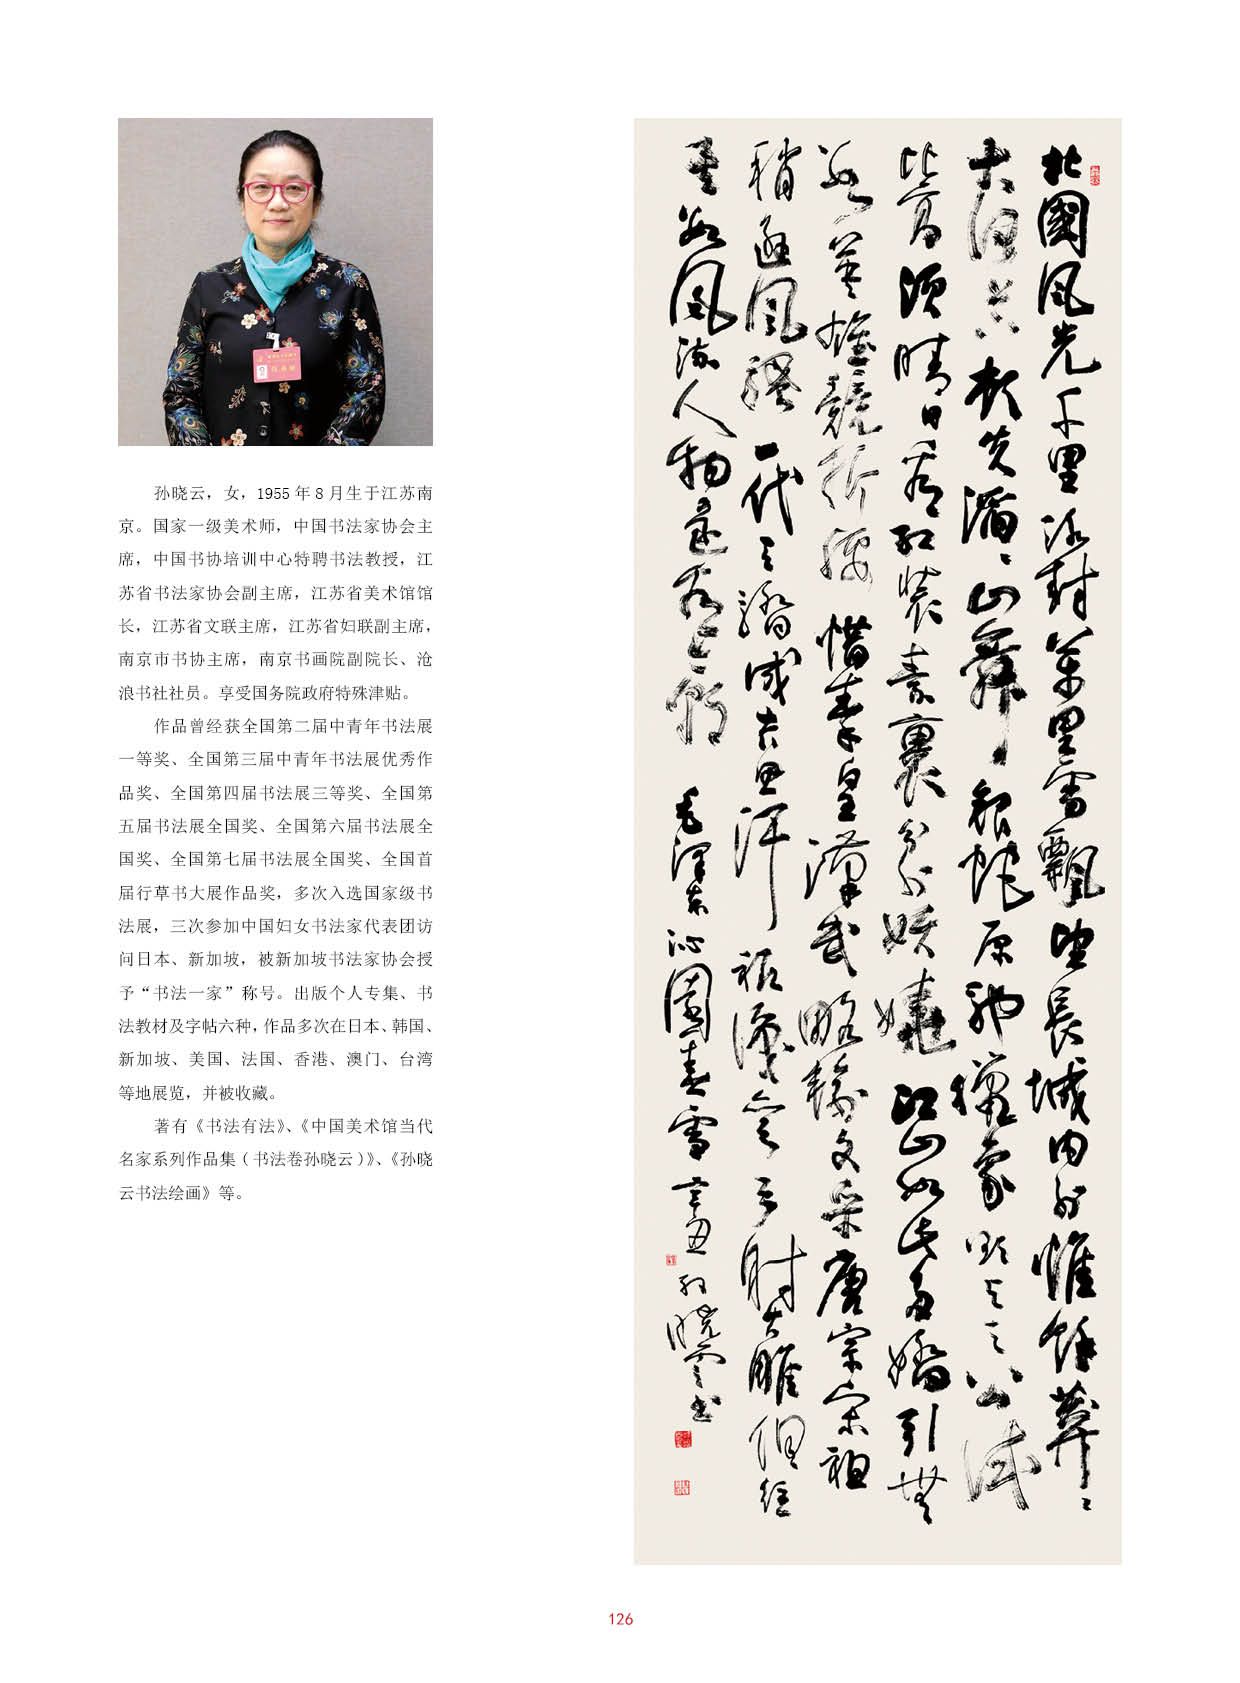 孙晓云，女，1955 年 8 月生于江苏南
京。国家一级美术师，中国书法家协会主
席，中国书协培训中心特聘书法教授，江
苏省书法家协会副主席，江苏省美术馆馆
长，江苏省文联主席，江苏省妇联副主席，
南京市书协主席，南京书画院副院长、沧
浪书社社员。享受国务院政府特殊津贴。
作品曾经获全国第二届中青年书法展
一等奖、全国第三届中青年书法展优秀作
品奖、全国第四届书法展三等奖、全国第
五届书法展全国奖、全国第六届书法展全
国奖、全国第七届书法展全国奖、全国首
届行草书大展作品奖，多次入选国家级书
法展，三次参加中国妇女书法家代表团访
问日本、新加坡，被新加坡书法家协会授
予“书法一家”称号。出版个人专集、书
法教材及字帖六种，作品多次在日本、韩国、
新加坡、美国、法国、香港、澳门、台湾
等地展览，并被收藏。
著有《书法有法》、《中国美术馆当代
名家系列作品集（书法卷孙晓云）》、《孙晓
云书法绘画》等。
北國風光千里冰封萬里雪飄望長城内外惟餘莽々
大河上下頓失滔々山舞銀蛇原馳蠟象欲與天公試
比高須晴日看紅裝素裹分外妖嬈江山如此多嬌引無
數英雄競折腰惜秦皇漢武略輸文采唐宗宋祖
稍遜風騷一代天驕成吉思汗祇識彎弓射大雕俱往
矣數風流人物還看今朝 毛澤東沁園春雪 辛丑 孫曉雲書
126